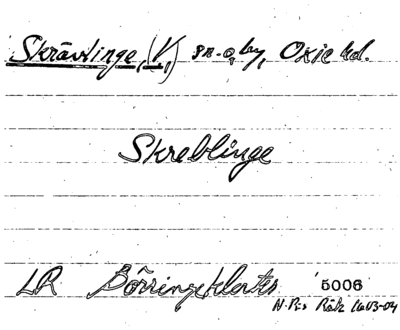 Skrävlinge, (V,) sn. o. by, Oxie hd.
Skreblinge
LR Börringekloster 5006
N. Räk 1603-04